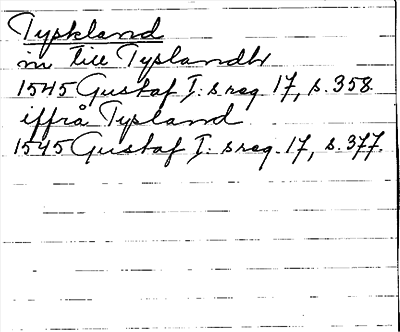 Tyskland
in till Tyslandh
1545 Gustaf I:s reg. 17, s. 358.
iffrå Tysland
1545 Gustaf I:s reg. 17, s. 377.